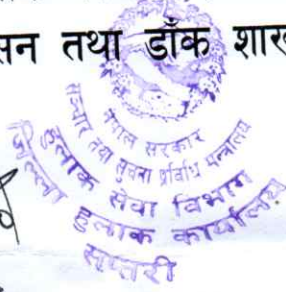 सन तथा डाँक शाख
नेपाल सरकार
सञ्चार तथा सूचना प्रविधि मन्त्रालय
हुलाक सेवा विभाग
जिल्ला हुलाक कार्यालय
सप्तरी